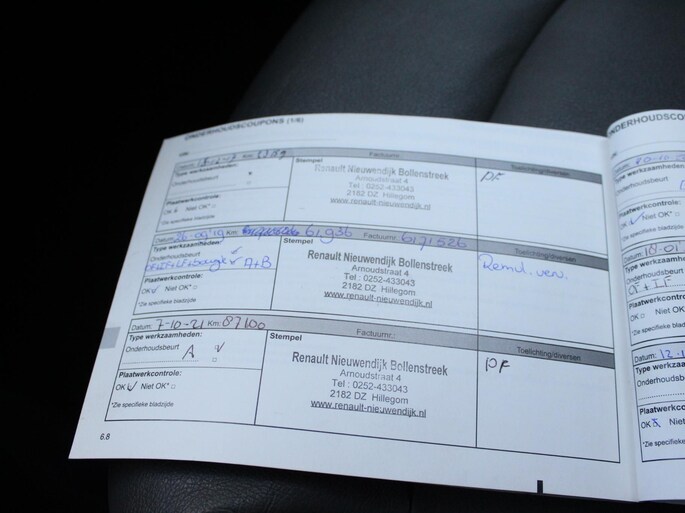 ONDERHOUDSCOUPONS (1/6)
VIN:
Datum: Km: Factuurnr.:
Type werkzaamheden:
Onderhoudsbeurt
Plaatwerkcontrole:
OK Niet OK*
*Zie specifieke bladzijde
Stempel
Renault Nieuwendijk Bollenstreek
Arnoudstraat 4
Tel : 0252-433043
2182 DZ Hillegom
www.renault-nieuwendijk.nl
Toelichting/diversen
PF
Datum: 26-09-19 Km: 61936 Factuurnr.: 6171526
Type werkzaamheden:
Onderhoudsbeurt
A+B
Plaatwerkcontrole:
OK Niet OK*
*Zie specifieke bladzijde
Stempel
Renault Nieuwendijk Bollenstreek
Arnoudstraat 4
Tel : 0252-433043
2182 DZ Hillegom
www.renault-nieuwendijk.nl
Toelichting/diversen
Remvl. verv.
Datum: 7-10-21 Km: 87100 Factuurnr.:
Type werkzaamheden:
Onderhoudsbeurt A
Plaatwerkcontrole:
OK Niet OK*
*Zie specifieke bladzijde
Stempel
Renault Nieuwendijk Bollenstreek
Arnoudstraat 4
Tel : 0252-433043
2182 DZ Hillegom
www.renault-nieuwendijk.nl
Toelichting/diversen
PF
6.8
ONDERHOUDSCOU
VIN:
Datum:
Type werkzaamheden:
Onderhoudsbeurt
Plaatwerkcontrole:
Niet OK*
*Zie specifieke bladzijde
Datum: 18-01
Type werkzaamheden:
Onderhoudsbeurt
Plaatwerkcontrole:
OK Niet OK*
*Zie specifieke bladzijde
Datum:
Type werkzaamhe
Onderhoudsbeurt
Plaatwerkcontrol
OK Niet
*Zie specifieke blad